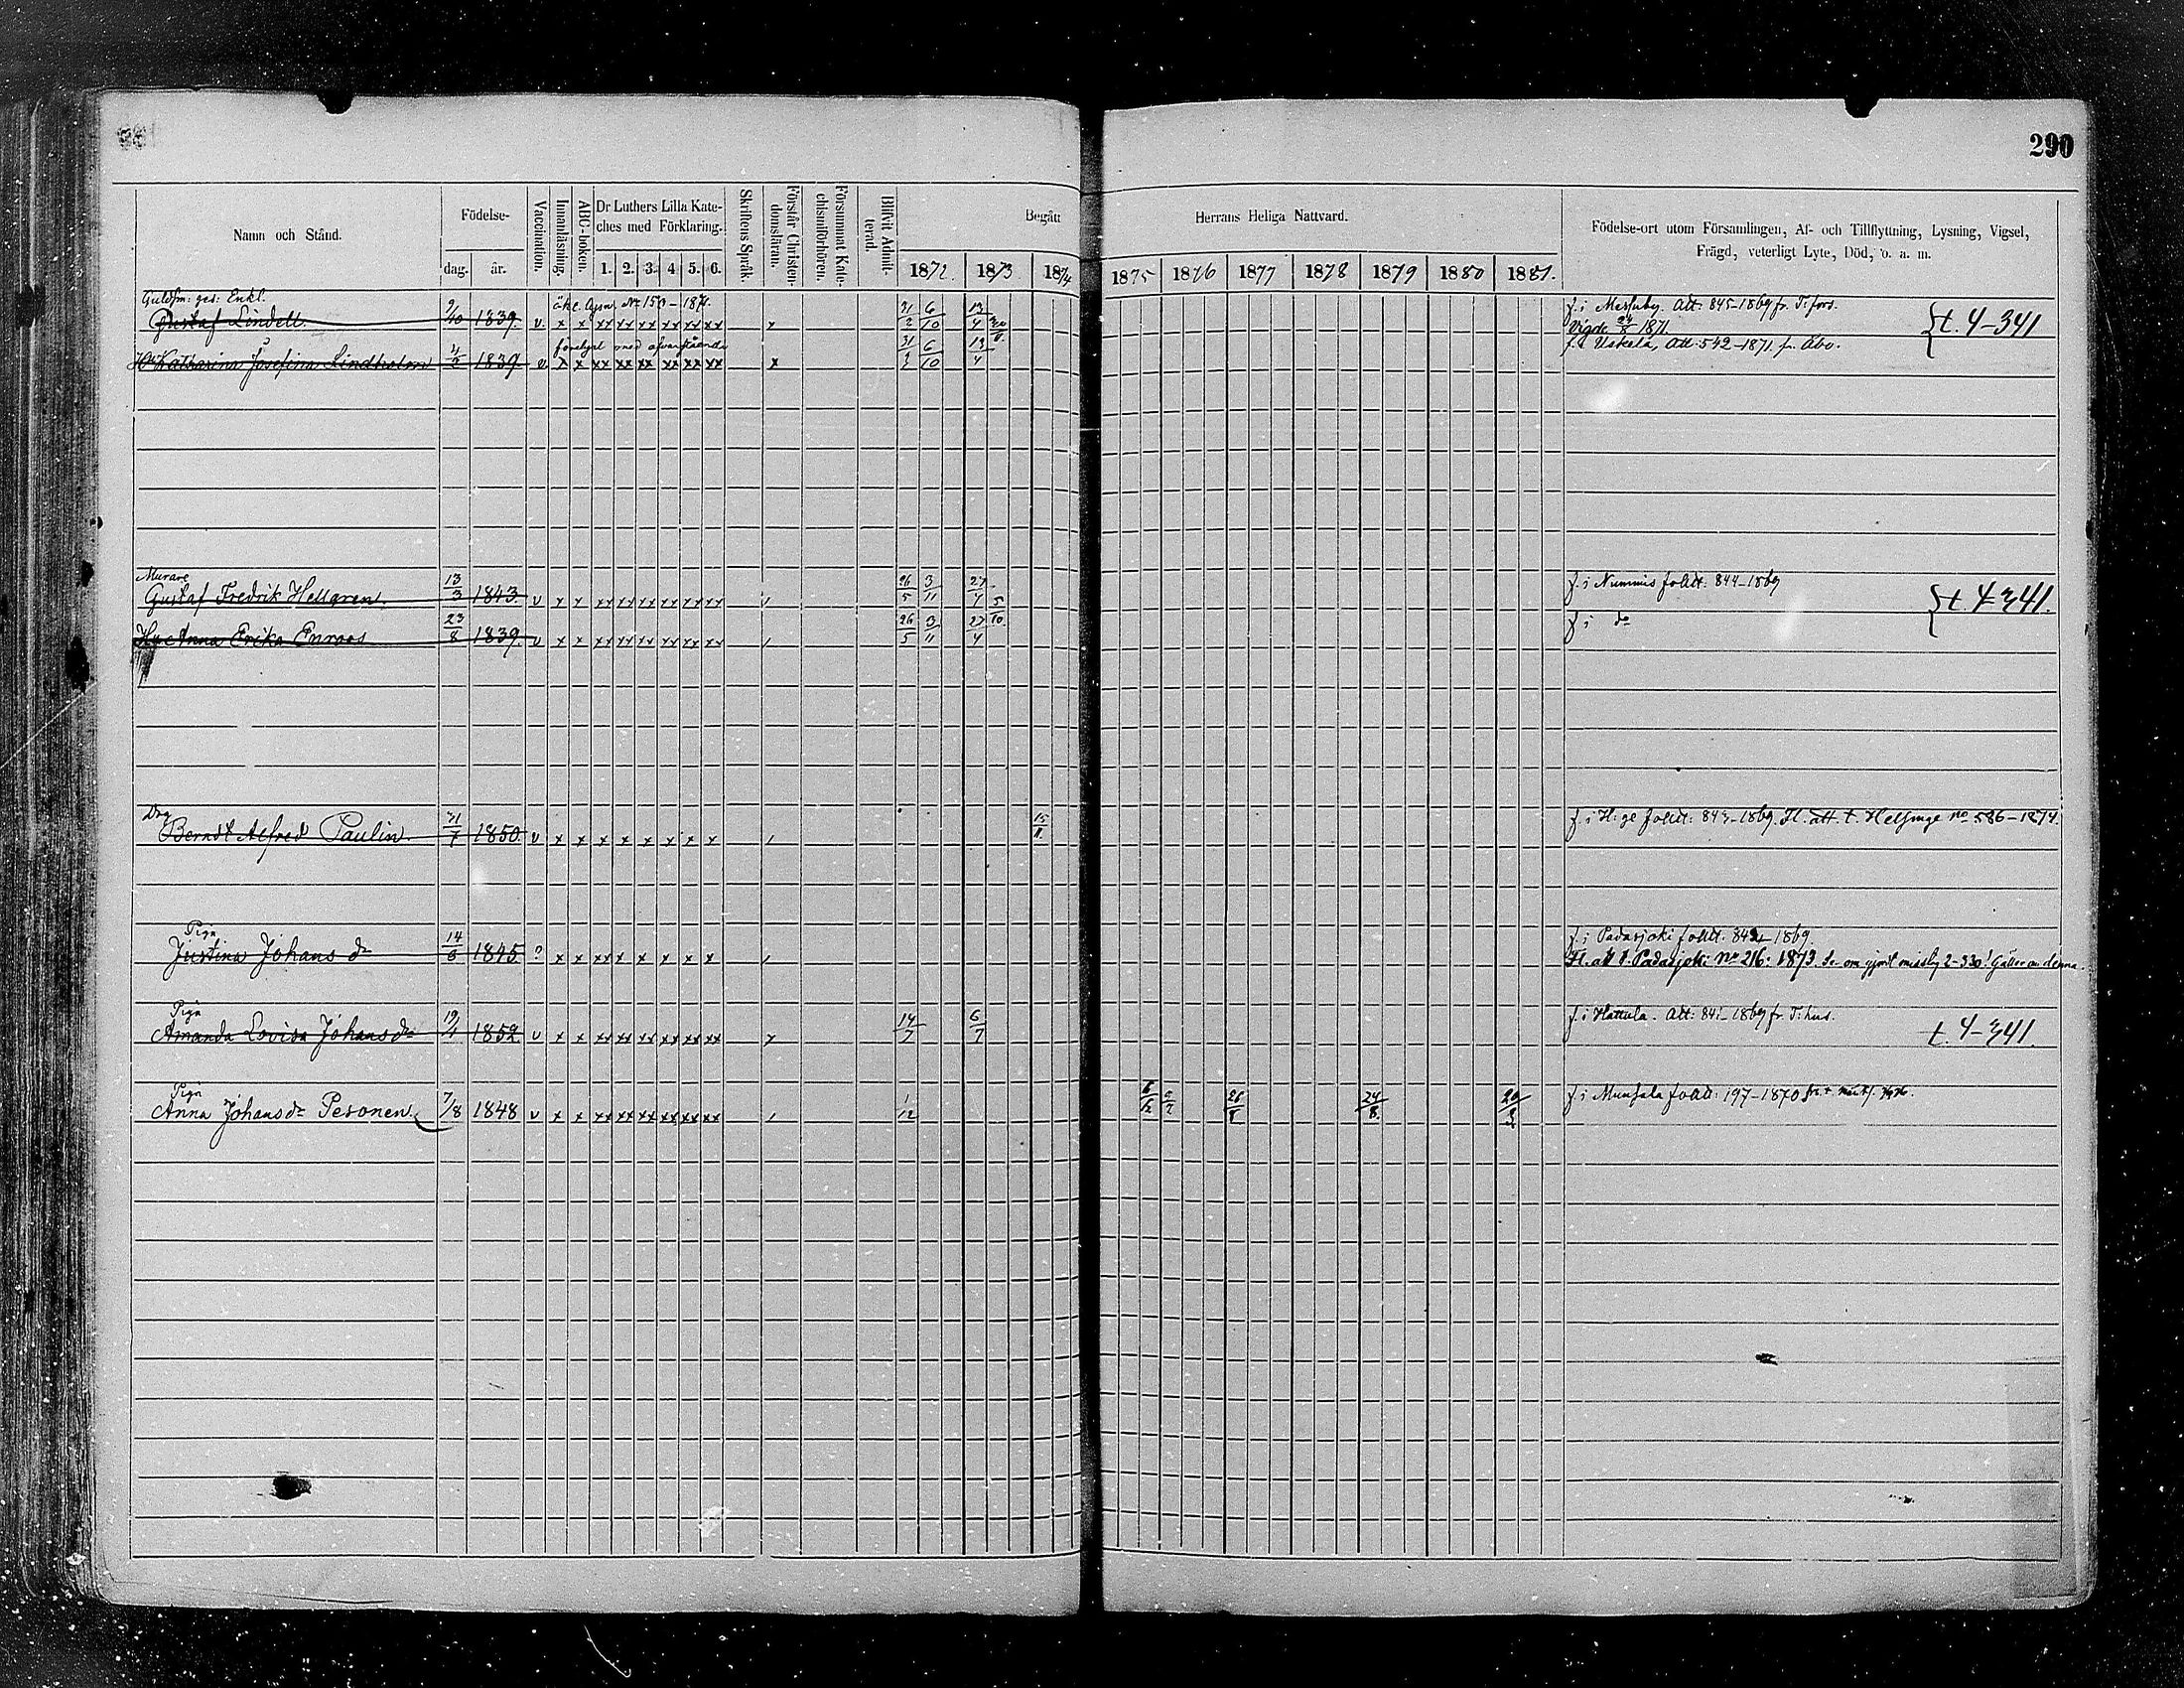 290
Namn och Stånd.
Födelse-
dag.
år.
Vaccination.
Innanläsning.
ABC-boken.
Dr Luthers Lilla Kate-
ches med Förklaring.
1. 2. 3. 4 5. 6.
Skriftens Språk.
Förstår Christen-
domsläran.
Försummat Kate-
chismiförhören.
Blifvit Admit-
terad.
Begått
Herrans Heliga Nattvard.
1872. 1873 1874
1875 1876 1877 1878 1879 1880 1881.
Födelse-ort utom Församlingen, Af- och Tillflyttning, Lysning, Vigsel,
Frägd, veterligt Lyte, Död, o. a. m.
Guldsm: ges: Enkl.
Gustaf Lindell. 9/10 1839. v. x x xx xx xx xx xx xx
No 150 - 1871.
31/2 6/10 13/4
Att: 845-1869 fr. T:fors.
Vigde 1871
t. 4-341
Katharina Josefina Lindholm 4/2 1839. v x x xx xx xx xx xx xx x
med ofvanstående
6/10 13/4
f. i Uskela, Att: 542-1871 fr. Åbo.
Murare
Gustaf Fredrik Hellgren. 13/3 1843. v x x xx xx xx xx xx xx
26/5 3/11 27/4 5/10.
f. i Nummis 844-1869
t. 4-341.
Hu Anna Erika Enroos 23/8 1839. v x x xx xx xx xx xx xx
26/5 3/11 27/4
f. i do
Drg
Berndt Alfred Paulin. 31/7 1850. v x x x x x x x x
f. i H:ge 1869. Fl. att. t. Helsinge no 586-1874.
Pign
Justina Johans dr 14/6 1845. ? x x x x x x x x
f. i Padasjoki 1869
Fl. att t. Padasjoki No 216: 1873. Se om 2-330! Gäller om denna.
Pign
Amanda Lovisa Johans dr 19/1 1852. v x x xx xx xx xx xx xx
14/7 6/7
f. i Hattula. Att: 1869 fr. T:hus.
t. 4-341.
Pign
Anna Johans dr Pesonen. 7/8 1848 v x x xx xx xx xx xx xx
1/12
6/12 26/8 24/8.
f. i Munsala 197-1870